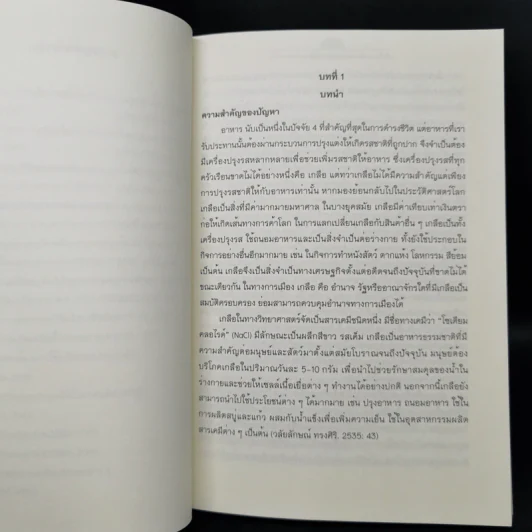 บทที่ 1
บทนำ
ความสำคัญของปัญหา
อาหาร นับเป็นหนึ่งในปัจจัย 4 ที่สำคัญที่สุดในการดำรงชีวิต แต่อาหารที่เรา
รับประทานนั้นต้องผ่านกระบวนการปรุงแต่งให้เกิดรสชาติที่ถูกปาก จึงจำเป็นต้อง
มีเครื่องปรุงรสหลากหลายเพื่อช่วยเพิ่มรสชาติให้อาหาร ซึ่งเครื่องปรุงรสที่ทุก
ครัวเรือนขาดไม่ได้อย่างหนึ่งคือ เกลือ แต่ทว่าเกลือไม่ได้มีความสำคัญแต่เพียง
การปรุงรสชาติให้กับอาหารเท่านั้น หากมองย้อนกลับไปในประวัติศาสตร์โลก
เกลือเป็นสิ่งที่มีค่ามากมายมหาศาล ในบางยุคสมัย เกลือมีค่าเทียบเท่าเงินตรา
ก่อให้เกิดเส้นทางการค้าโลก ในการแลกเปลี่ยนเกลือกับสินค้าอื่น ๆ เกลือเป็นทั้ง
เครื่องปรุงรส ใช้ถนอมอาหารและเป็นสิ่งจำเป็นต่อร่างกาย ทั้งยังใช้ประกอบใน
กิจการอย่างอื่นอีกมากมาย เช่น ในกิจการทำหนังสัตว์ ตากแห้ง โลหกรรม สีย้อม
เป็นต้น เกลือจึงเป็นสิ่งจำเป็นทางเศรษฐกิจตั้งแต่อดีตจนถึงปัจจุบันที่ขาดไม่ได้
ขณะเดียวกัน ในทางการเมือง เกลือ คือ อำนาจ รัฐหรืออาณาจักรใดที่มีเกลือเป็น
สมบัติครอบครอง ย่อมสามารถควบคุมอำนาจทางการเมืองได้
เกลือในทางวิทยาศาสตร์จัดเป็นสารเคมีชนิดหนึ่ง มีชื่อทางเคมีว่า "โซเดียม
คลอไรด์" (NaCl) มีลักษณะเป็นผลึกสีขาว รสเค็ม เกลือเป็นอาหารธรรมชาติที่มี
ความสำคัญต่อมนุษย์และสัตว์มาตั้งแต่สมัยโบราณจนถึงปัจจุบัน มนุษย์ต้อง
บริโภคเกลือในปริมาณวันละ 5-10 กรัม เพื่อนำไปช่วยรักษาสมดุลของน้ำใน
ร่างกายและช่วยให้เซลล์เนื้อเยื่อต่าง ๆ ทำงานได้อย่างปกติ นอกจากนี้เกลือยัง
สามารถนำไปใช้ประโยชน์ต่าง ๆ ได้มากมาย เช่น ปรุงอาหาร ถนอมอาหาร ใช้ใน
การผลิตสบู่และแก้ว ผสมกับน้ำแข็งเพื่อเพิ่มความเย็น ใช้ในอุตสาหกรรมผลิต
สารเคมีต่าง ๆ เป็นต้น (วลัยลักษณ์ ทรงศิริ. 2535: 43)